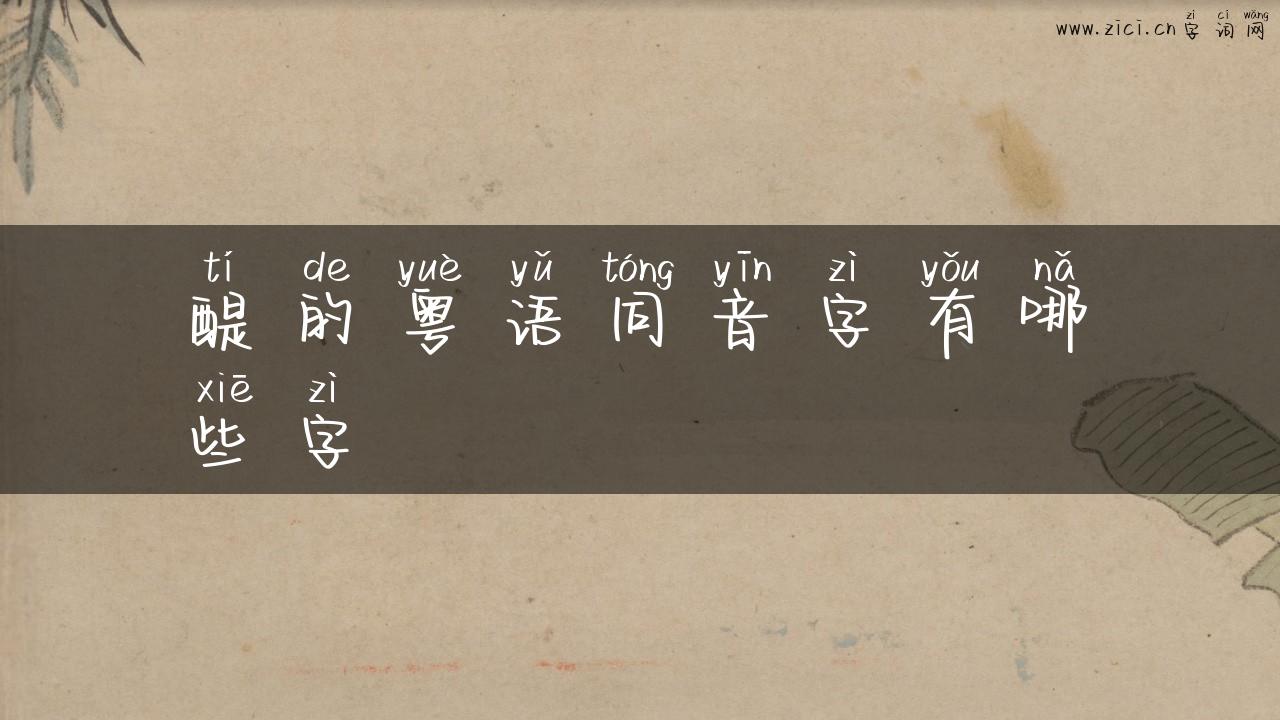 zì cí wǎng
www.zici.cn 字词网
tí de yuè yǔ tóng yīn zì yǒu nǎ
醍的粤语同音字有哪
xiē zì
些字